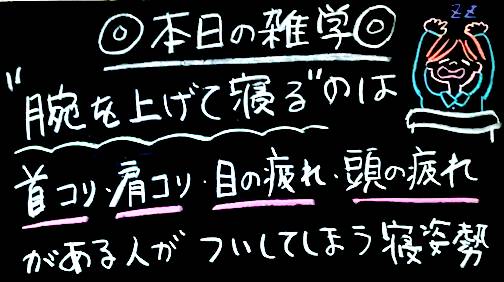 ◎本日の雑学◎
zz
"腕を上げて寝る"のは
首コリ・肩コリ・目の疲れ・頭の疲れ
がある人が ついしてしまう寝姿勢